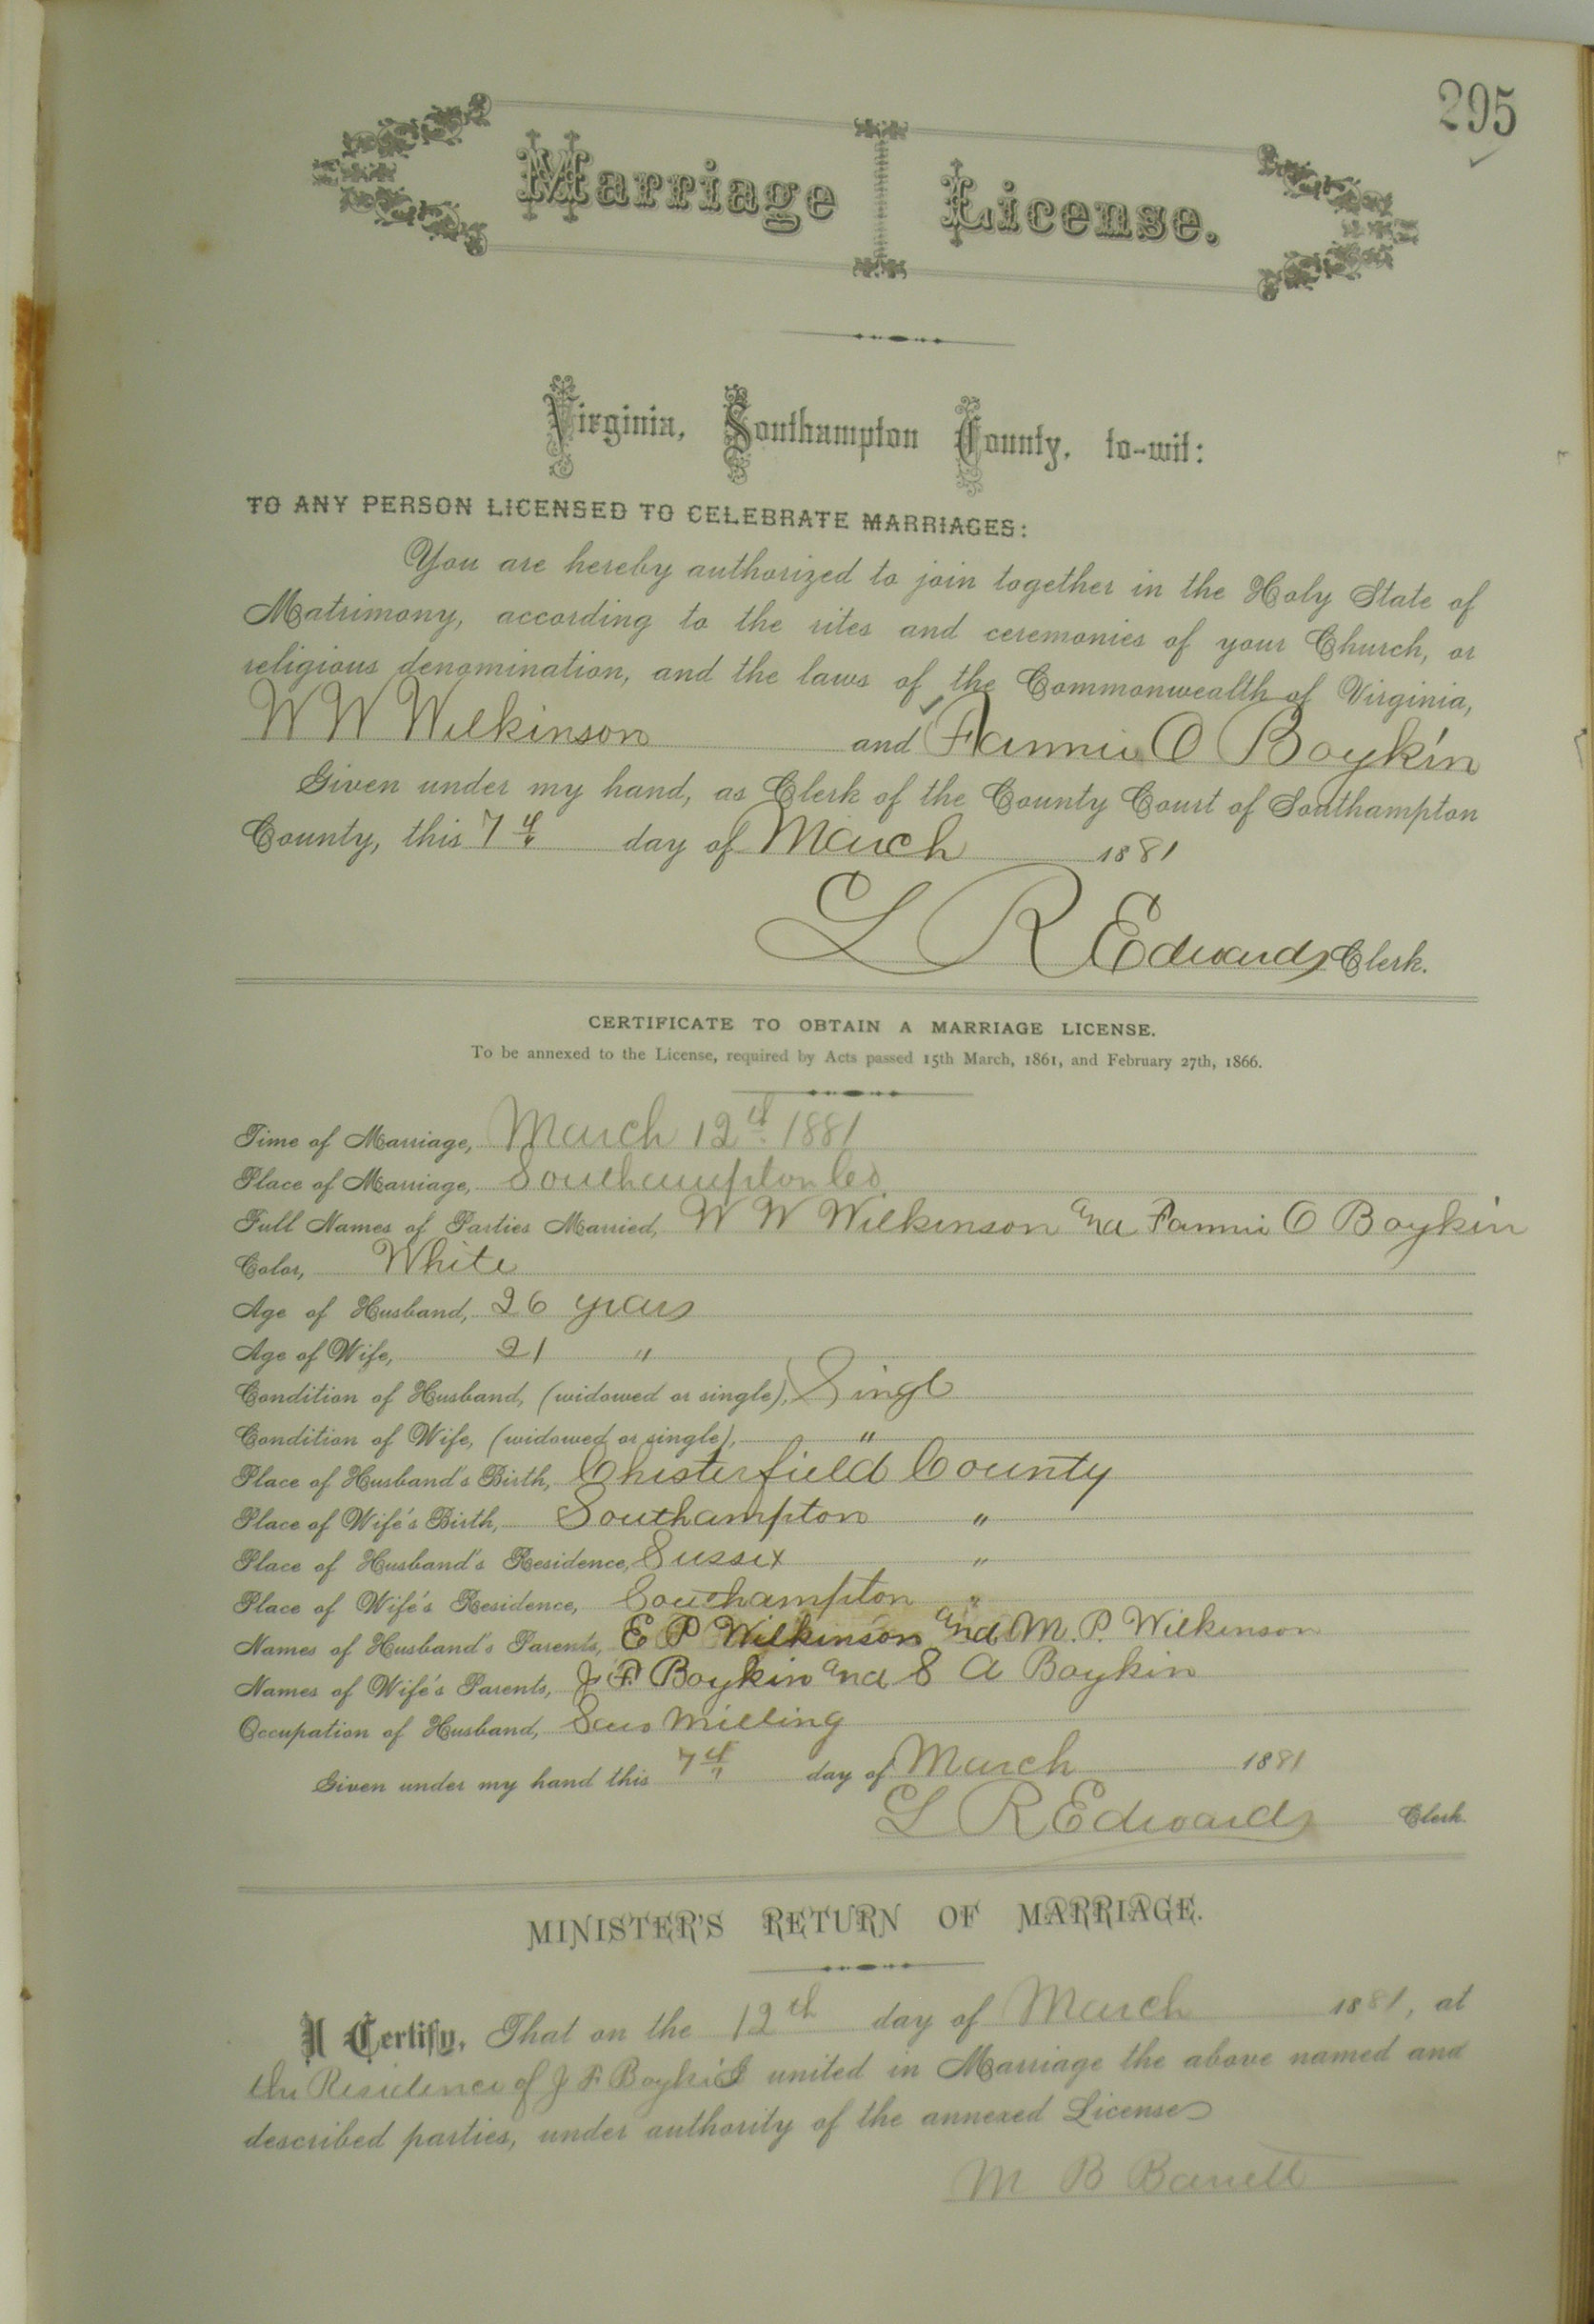 295
Marriage License.
Virginia, Southampton County, to-wit:
TO ANY PERSON LICENSED TO CELEBRATE MARRIAGES:
You are hereby authorized to join together in the Holy State of
Matrimony, according to the rites and ceremonies of your Church, or
religious denomination, and the laws of the Commonwealth of Virginia,
W W Wilkinson and Fannie O Boykin
Given under my hand, as Clerk of the County Court of Southampton
County, this 7th day of March 1881
L R Edwards Clerk.
CERTIFICATE TO OBTAIN A MARRIAGE LICENSE.
To be annexed to the License, required by Acts passed 15th March, 1861, and February 27th, 1866.
Time of Marriage, March 12th 1881
Place of Marriage, Southampton Co.
Full Names of Parties Married, W W Wilkinson and Fannie O Boykin
Color, White
Age of Husband, 26 years
Age of Wife, 21 "
Condition of Husband, (widowed or single), Single
Condition of Wife, (widowed or single), "
Place of Husband's Birth, Chesterfield County
Place of Wife's Birth, Southampton "
Place of Husband's Residence, Sussex "
Place of Wife's Residence, Southampton "
Names of Husband's Parents, E P Wilkinson and M. P. Wilkinson
Names of Wife's Parents, J F Boykin and S A Boykin
Occupation of Husband, Saw Milling
Given under my hand this 7th day of March 1881
L R Edwards Clerk.
MINISTER'S RETURN OF MARRIAGE.
I Certify, That on the 12th day of March 1881, at
the Residence of J F Boykin I united in Marriage the above named and
described parties, under authority of the annexed License
M B Barrett